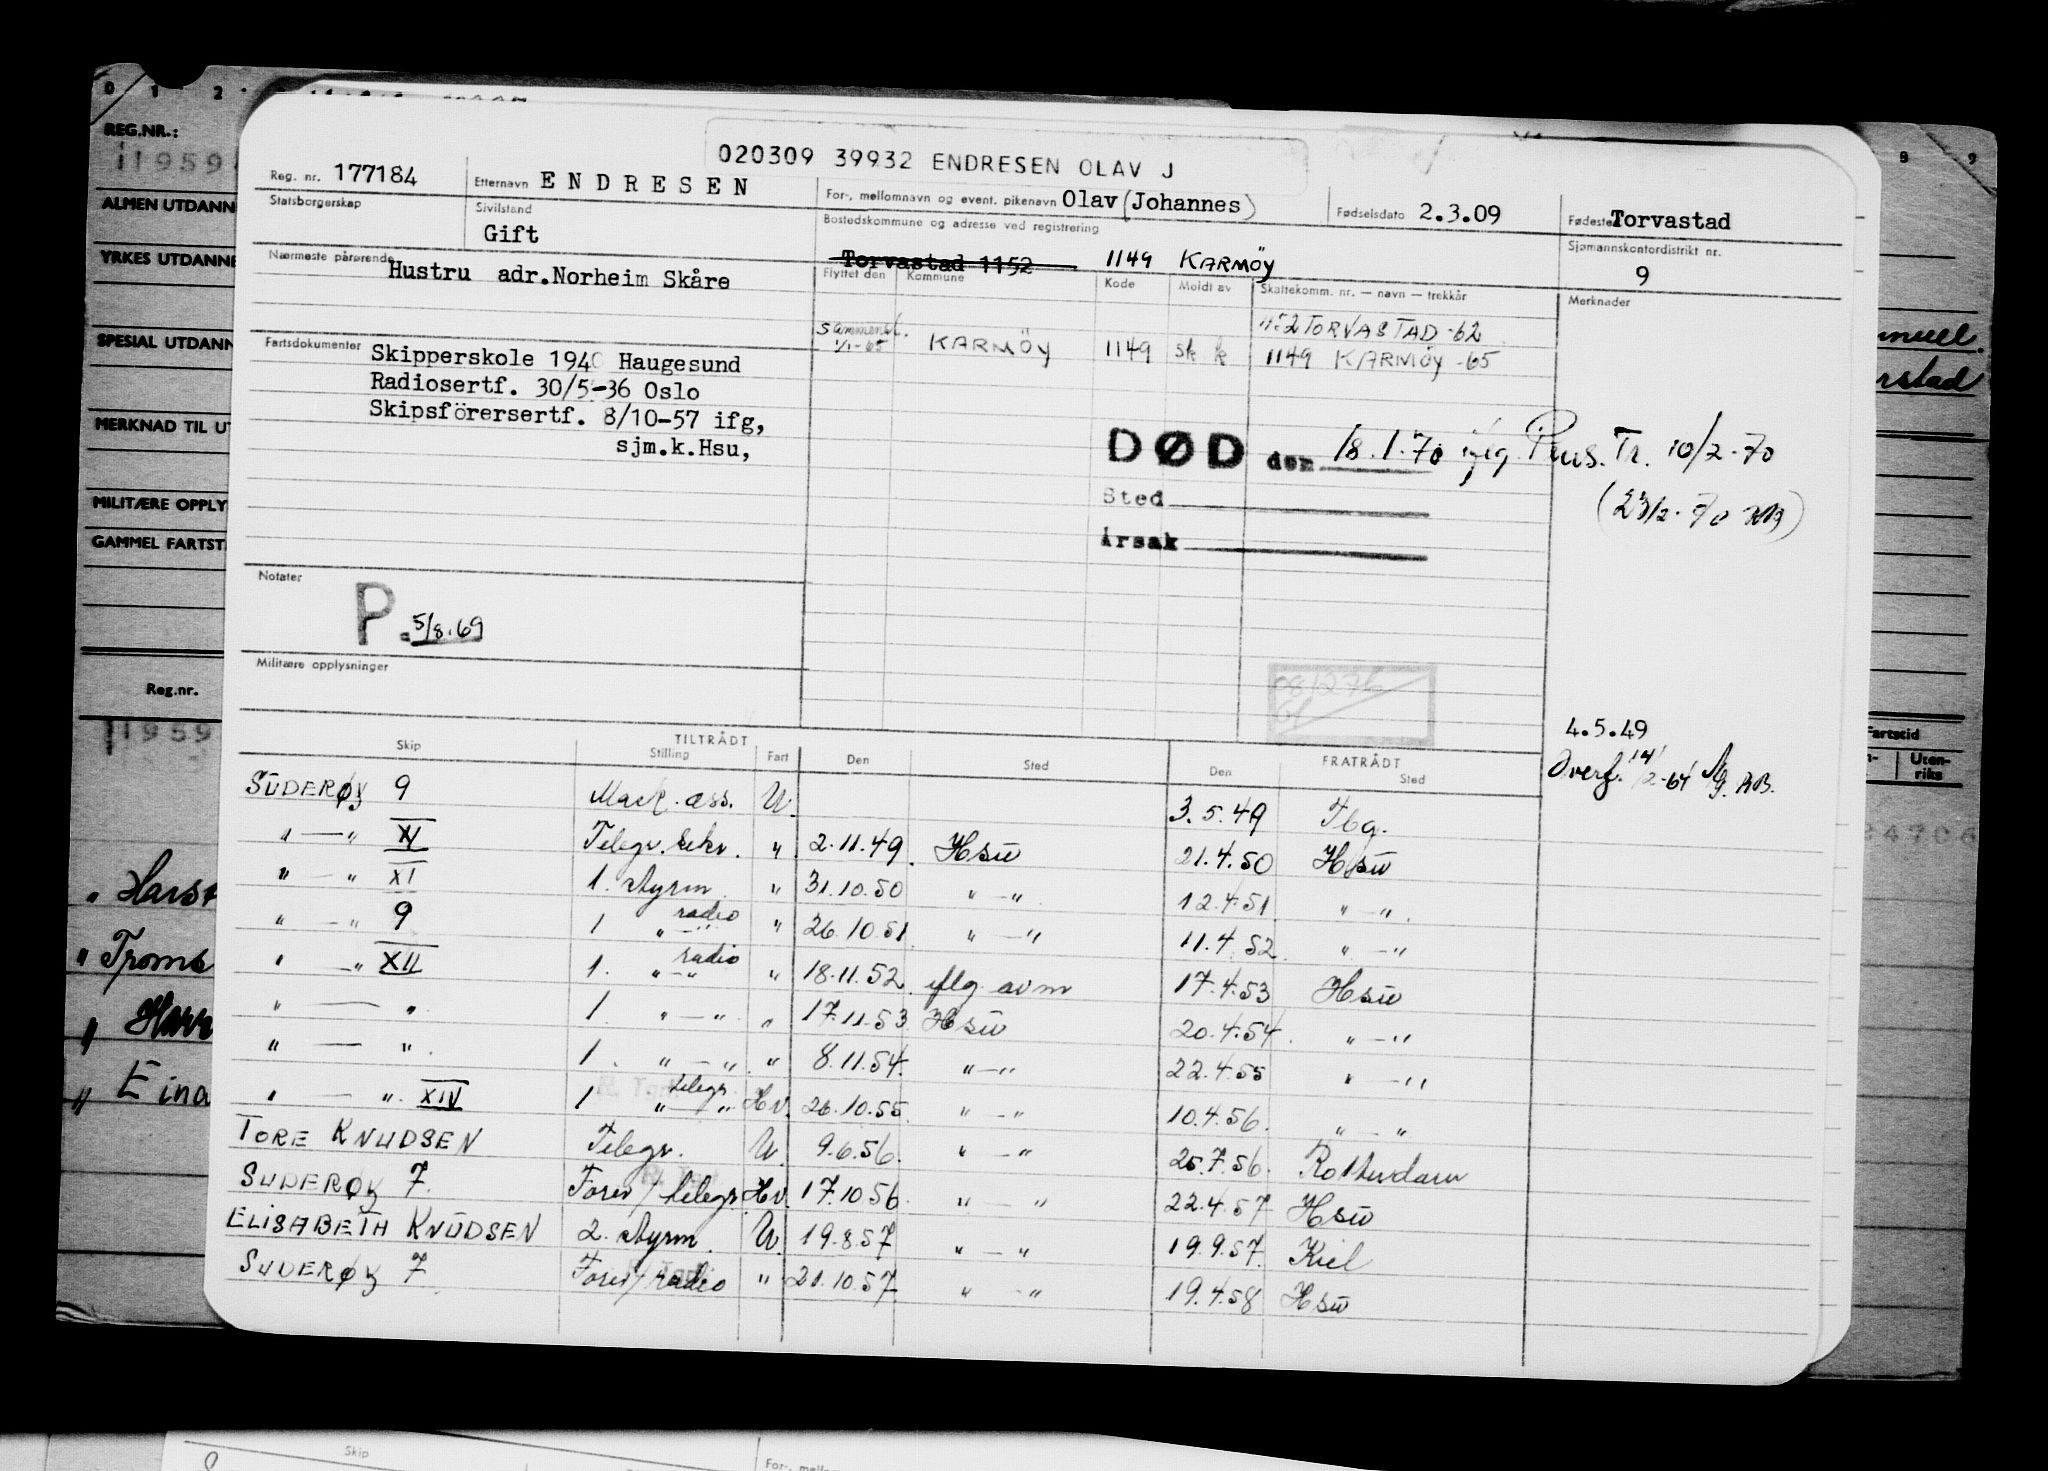 0 1 2
9 9
REG.NR.:
11959
ALMEN UTDANN
YRKES UTDANNE
SPESIAL UTDANN
MERKNAD TIL UT
MILITÆRE OPPLY
GAMMEL FARTST
Reg.nr.
11959
" Harst
" Troms
" Harr
" Eina
nuel.
rstad
Fartstid
n- Uten-
riks
24706
020309 39932 ENDRESEN OLAV J
Reg. nr. 177184 Etternavn ENDRESEN For-, mellomnavn og event. pikenavn Olav (Johannes) Fødselsdato 2.3.09 Fødeste Torvastad
Statsborgerskap Sivilstand Gift Bostedskommune og adresse ved registrering Sjømannskontordistrikt nr.
Torvastad 1152 1149 KARMÖY 9
Nærmeste pårørende Hustru adr.Norheim Skåre
Flyttet den Kommune Kode Meldt av Skattekomm. nr. — navn — trekkår Merknader
1152 TORVASTAD -62
Sammensl. 1/1-65 KARMÖY 1149 sk k 1149 KARMÖY -65
Fartsdokumenter Skipperskole 1940 Haugesund
Radiosertf. 30/5-36 Oslo
Skipsförersertf. 8/10-57 ifg,
sjm.k.Hsu,
DØD den 18.1.70 iflg. Pens. Tr. 10/2-70
(23/2-70 RB)
Sted
Årsak
Notater
P. 5/8.69
Militære opplysninger
081276
61
4.5.49
Overf. 14/2-61 RB.
TILTRÅDT FRATRÅDT
Skip Stilling Fart Den Sted Den Sted
SÜDERØY 9 Mask. ass. U. 3.5.49 Tbg.
" — " XI Telegr. sekr. " 2.11.49. Hsū 21.4.50 Hsū
" — " XI 1. styrm. " 31.10.50 " — " 12.4.51. " — "
" — " 9 1 " — " radio " 26.10.51. " — " 11.4.52. " — "
" — " XII 1. " — " radio " 18.11.52. iflg avm 17.4.53 Hsū
" — " 1 " — " " 17.11.53 Hsū 20.4.54. " — "
" — " 1. " — " " 8.11.54. " — " 22.4.55 " — "
" — " XIV 1 " — " telegr. Hv. 26.10.55. " — " 10.4.56. " — "
TORE KNUDSEN Telegr. U. 9.6.56. " — " 25.7.56. Rotterdam
SUDERØY 7. Forer/telegr. Hv. 17.10.56. " — " 22.4.57 Hsū
ELISABETH KNUDSEN 2. styrm. U. 19.8.57 " — " 19.9.57. Kiel
SUDERØY 7 Forer/radio " 21.10.57. " — " 19.4.58 Hsū
Skip
For-, mellom